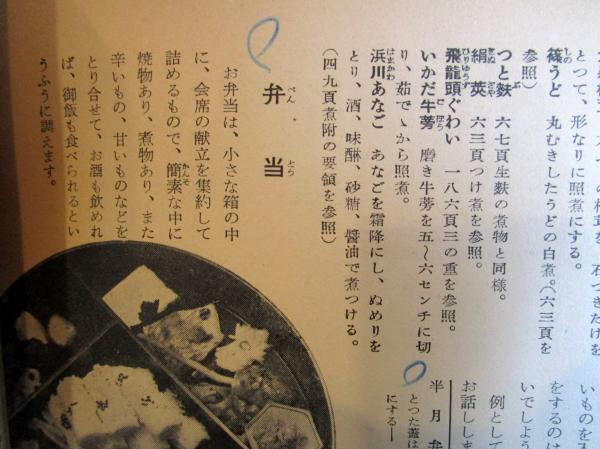 とつて、形なりに照煮にする。
篠うど　丸むきしたうどの白煮。（六三頁を
参照）
つと麩　六七頁生麩の煮物と同様。
絹莢　六三頁つけ煮を参照。
飛龍頭ぐわい　一八六頁三の重を参照。
いかだ牛蒡　磨き牛蒡を五〜六センチに切
り、茹でゝから照煮。
浜川あなご　あなごを霜降にし、ぬめりを
とり、酒、味醂、砂糖、醤油で煮つける。
（四九頁煮附の要領を参照）
弁当
お弁当は、小さな箱の中
に、会席の献立を集約して
詰めるもので、簡素な中に
焼物あり、煮物あり、また
辛いもの、甘いものなどを
とり合せて、お酒も飲めれ
ば、御飯も食べられるとい
うふうに調えます。
いものを
をするのは
いでしよう
例として
お話しし
半月弁
とつた蓋は
にする―